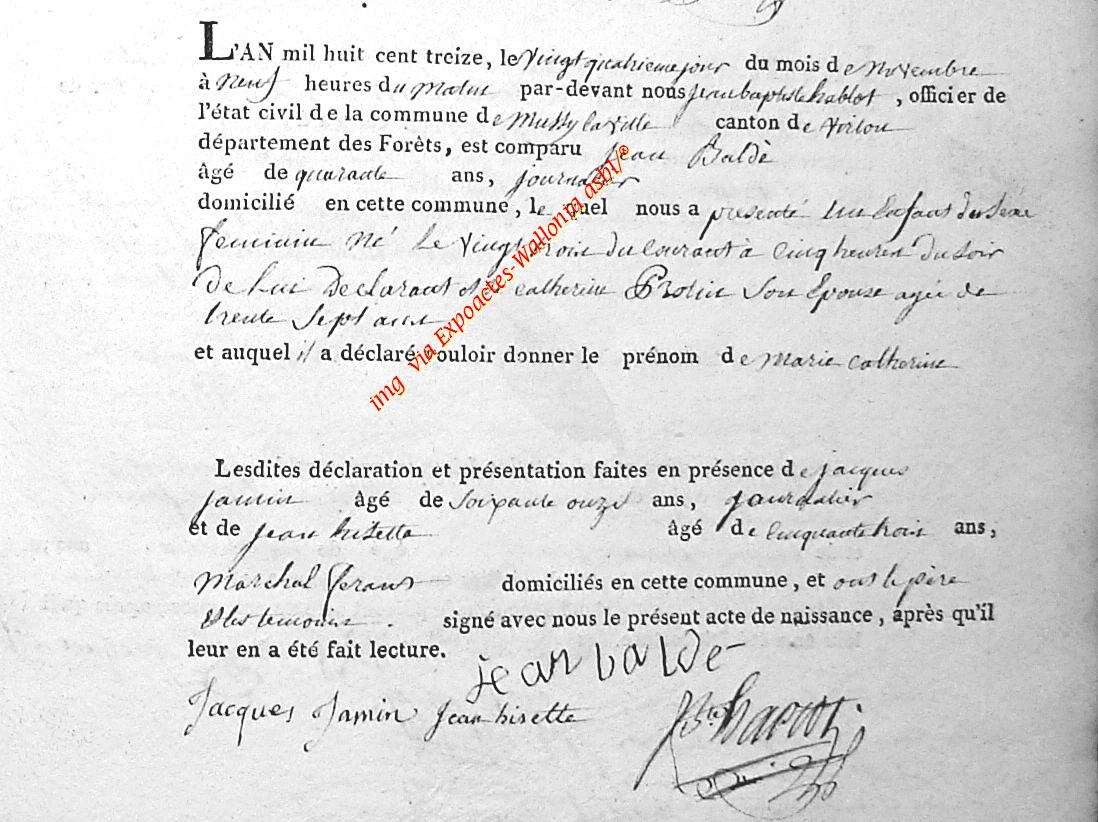 L'AN mil huit cent treize, le Vingt quatrieme jour du mois de Novembre
à Neuf heures du Matin par-devant nous jean baptiste hablot, officier de
l'état civil de la commune de Mussy la Ville canton de Virton
département des Forêts, est comparu Jean Baldè
âgé de quarante ans, journalier
domicilié en cette commune, le quel nous a presenté un enfant du sexe
feminin Né Le Vingt trois du Courant à Cinq heures du soir
de Lui Declarant et de catherine son Epouse agée de
trente Sept ans
et auquel il a déclaré vouloir donner le prénom de Marie catherine
Lesdites déclaration et présentation faites en présence de jacques
jamin âgé de Soixante onze ans, journalier
et de jean hizette âgé de Cinquante trois ans,
Marchal ferant domiciliés en cette commune, et ont le père
et les temoins . signé avec nous le présent acte de naissance, après qu'il
leur en a été fait lecture.
jean balde
Jacques Jamin Jean hisette
img via Expoactes-Wallonia asbl/®